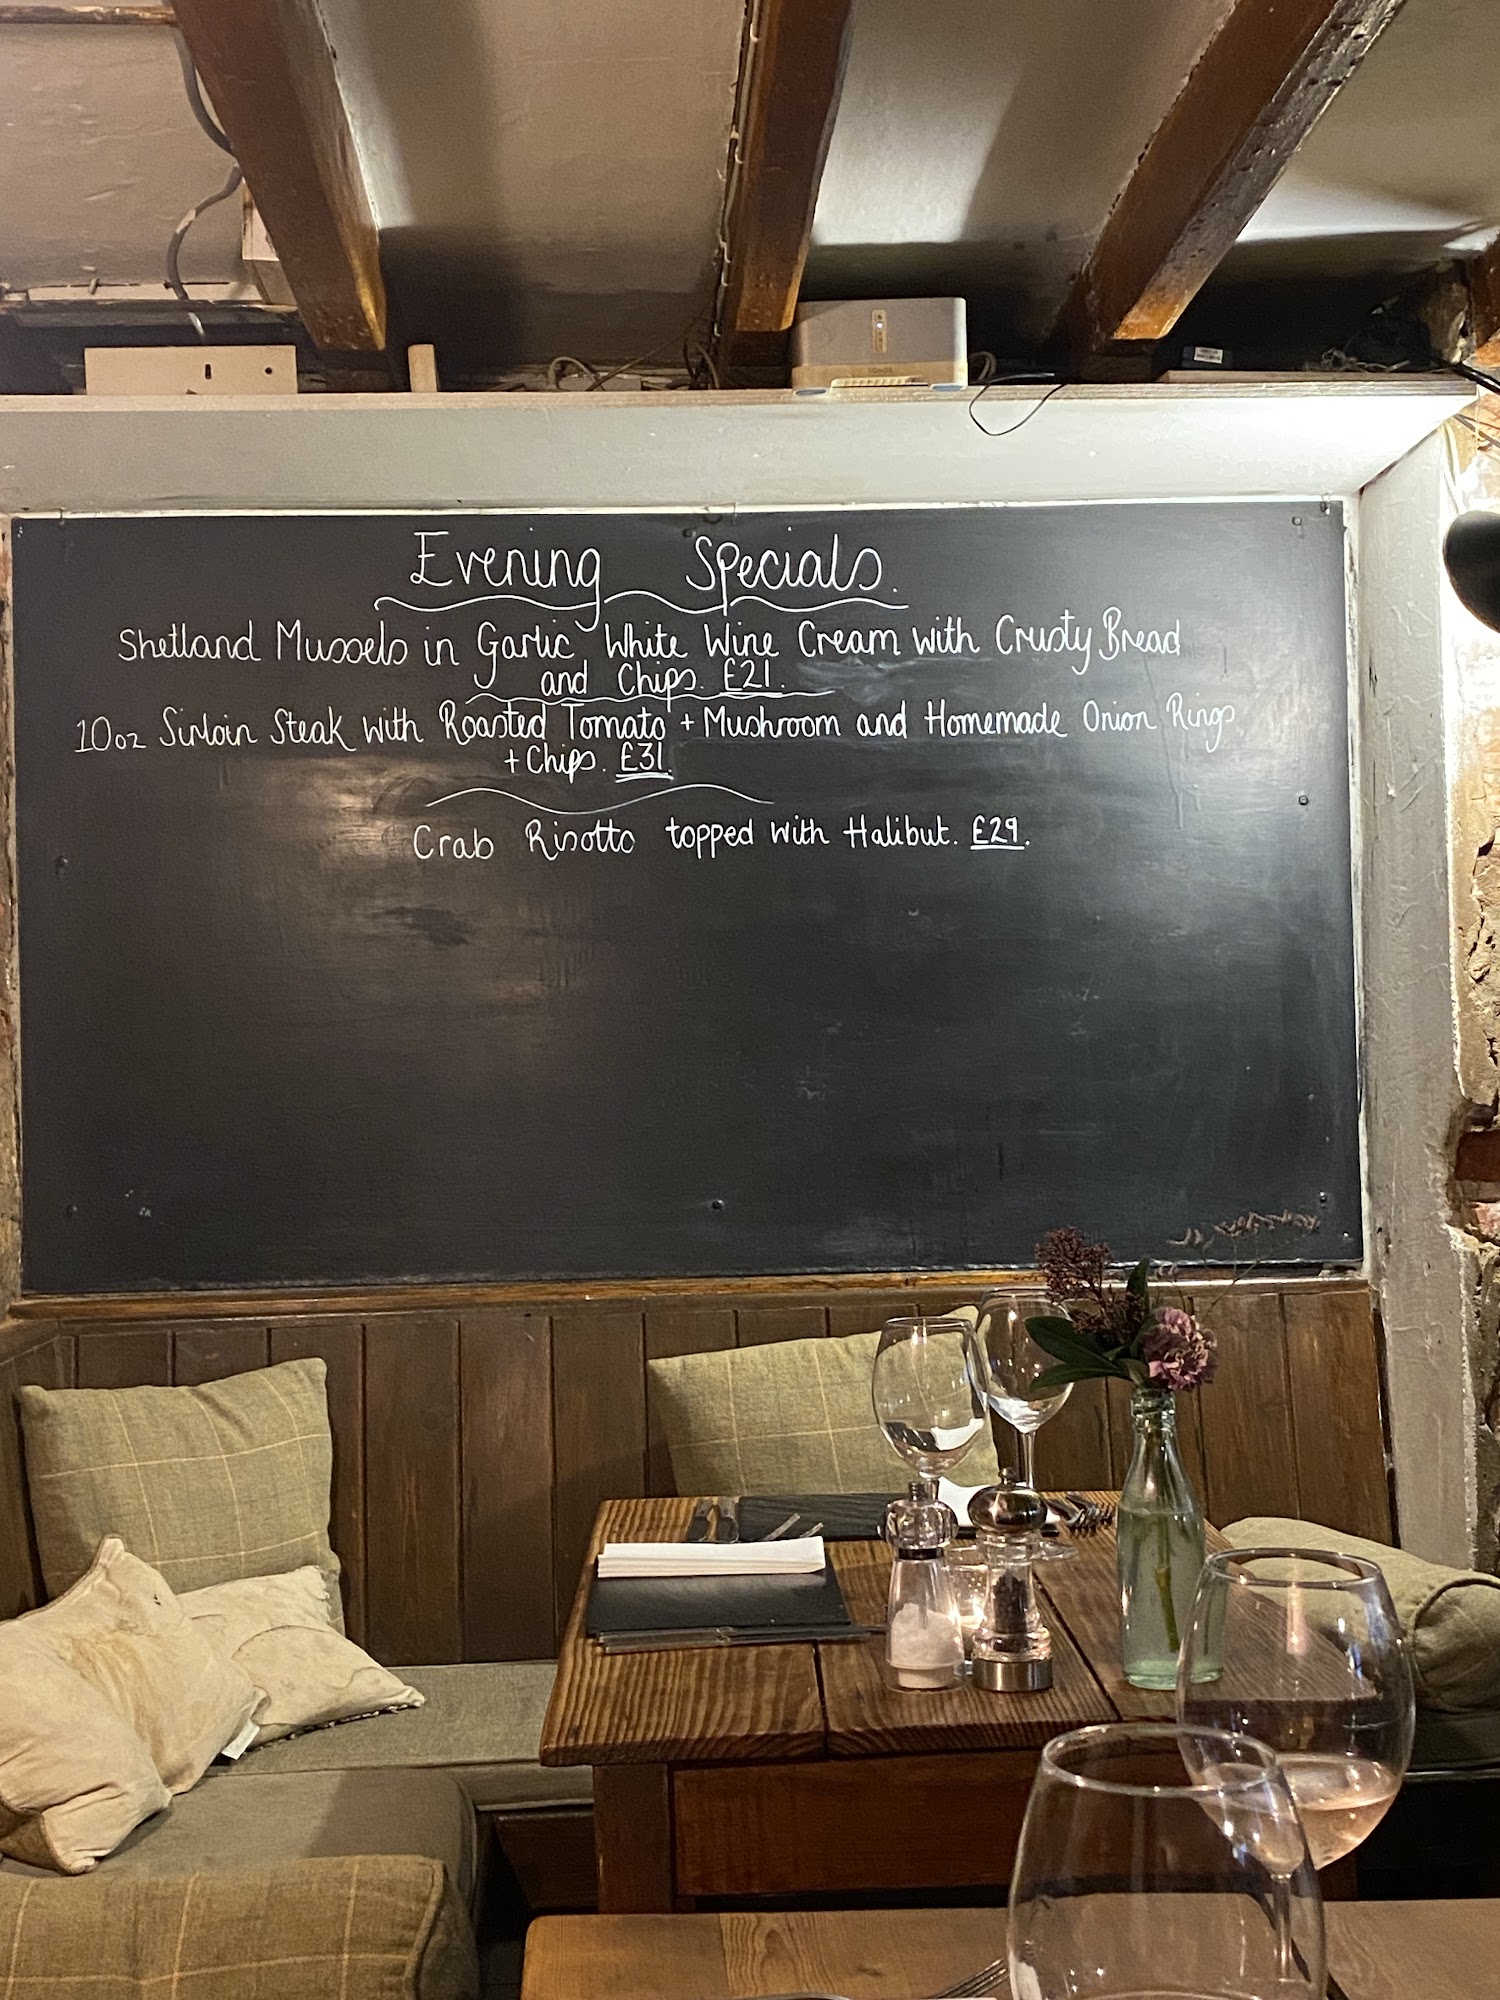 Evening Specials.
Shetland Mussels in Garlic White Wine Cream with Crusty Bread
and Chips. £21.
10oz Sirloin Steak with Roasted Tomato + Mushroom and Homemade Onion Rings
+ Chips. £31.
Crab Risotto topped with Halibut. £29.
SONOS